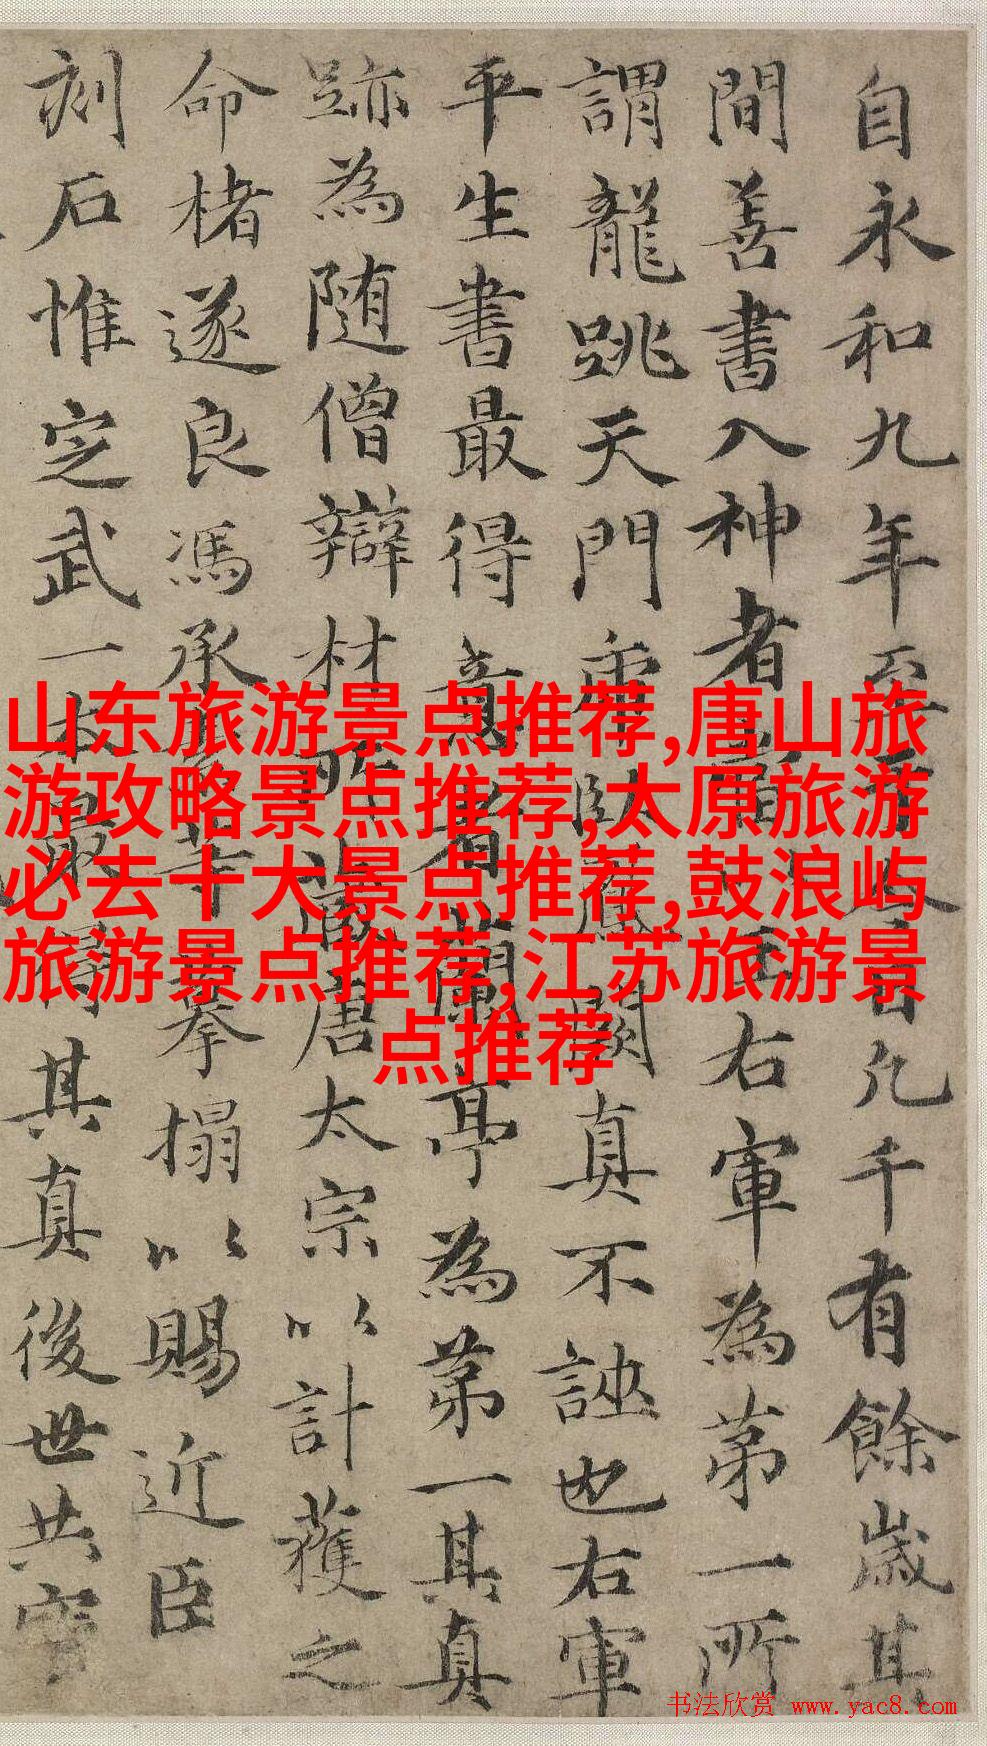 自永和九年至今凡千有餘歲其
間善書入神者當右軍為第一所
謂龍跳天門虎臥鳳闕真不誣也右軍
平生書最得意者蘭亭為第一其真
跡為随僧辯材所藏唐太宗以計獲之
命楮遂良馮承素等拳搨以賜近臣
刻石惟定武一本最得其真後世共寳
山东旅游景点推荐,唐山旅
游攻略景点推荐,太原旅游
必去十大景点推荐,鼓浪屿
旅游景点推荐,江苏旅游景
点推荐
书法欣赏 www.yac8.com